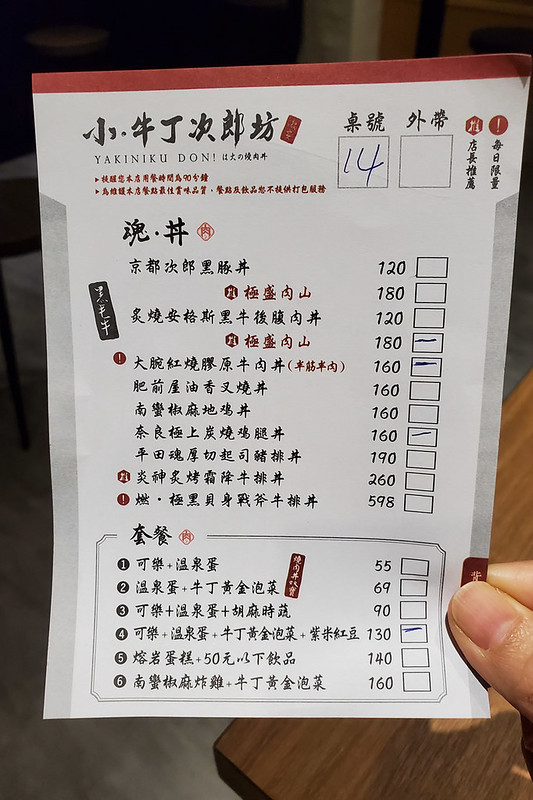 小·牛丁次郎坊
YAKINIKU DON! は大の燒肉丼
▸提醒您本店用餐時間為90分鐘
▸為維護本店餐點最佳賞味品質，餐點及飲品恕不提供打包服務
桌號 外帶
14
推 店長推薦
! 每日限量
魂·丼 肉
京都次郎黑豚丼 120
推 極盛肉山 180
黑毛牛
炙燒安格斯黑牛後腹肉丼 120
推 極盛肉山 180 一
! 大腕紅燒膠原牛肉丼(半筋半肉) 160 一
肥前屋油香叉燒丼 160
南蠻椒麻地鷄丼 160
奈良極上炭燒鷄腿丼 160 一
平田魂厚切起司豬排丼 190
推 炎神炙烤霜降牛排丼 260
! 燃·極黑貝身戰斧牛排丼 598
套餐 肉
燒肉丼以外
❶ 可樂+溫泉蛋 55
❷ 溫泉蛋+牛丁黃金泡菜 69
❸ 可樂+溫泉蛋+胡麻時蔬 90
❹ 可樂+溫泉蛋+牛丁黃金泡菜+紫米紅豆 130 一
❺ 熔岩蛋糕+50元以下飲品 140
❻ 南蠻椒麻炸雞+牛丁黃金泡菜 160